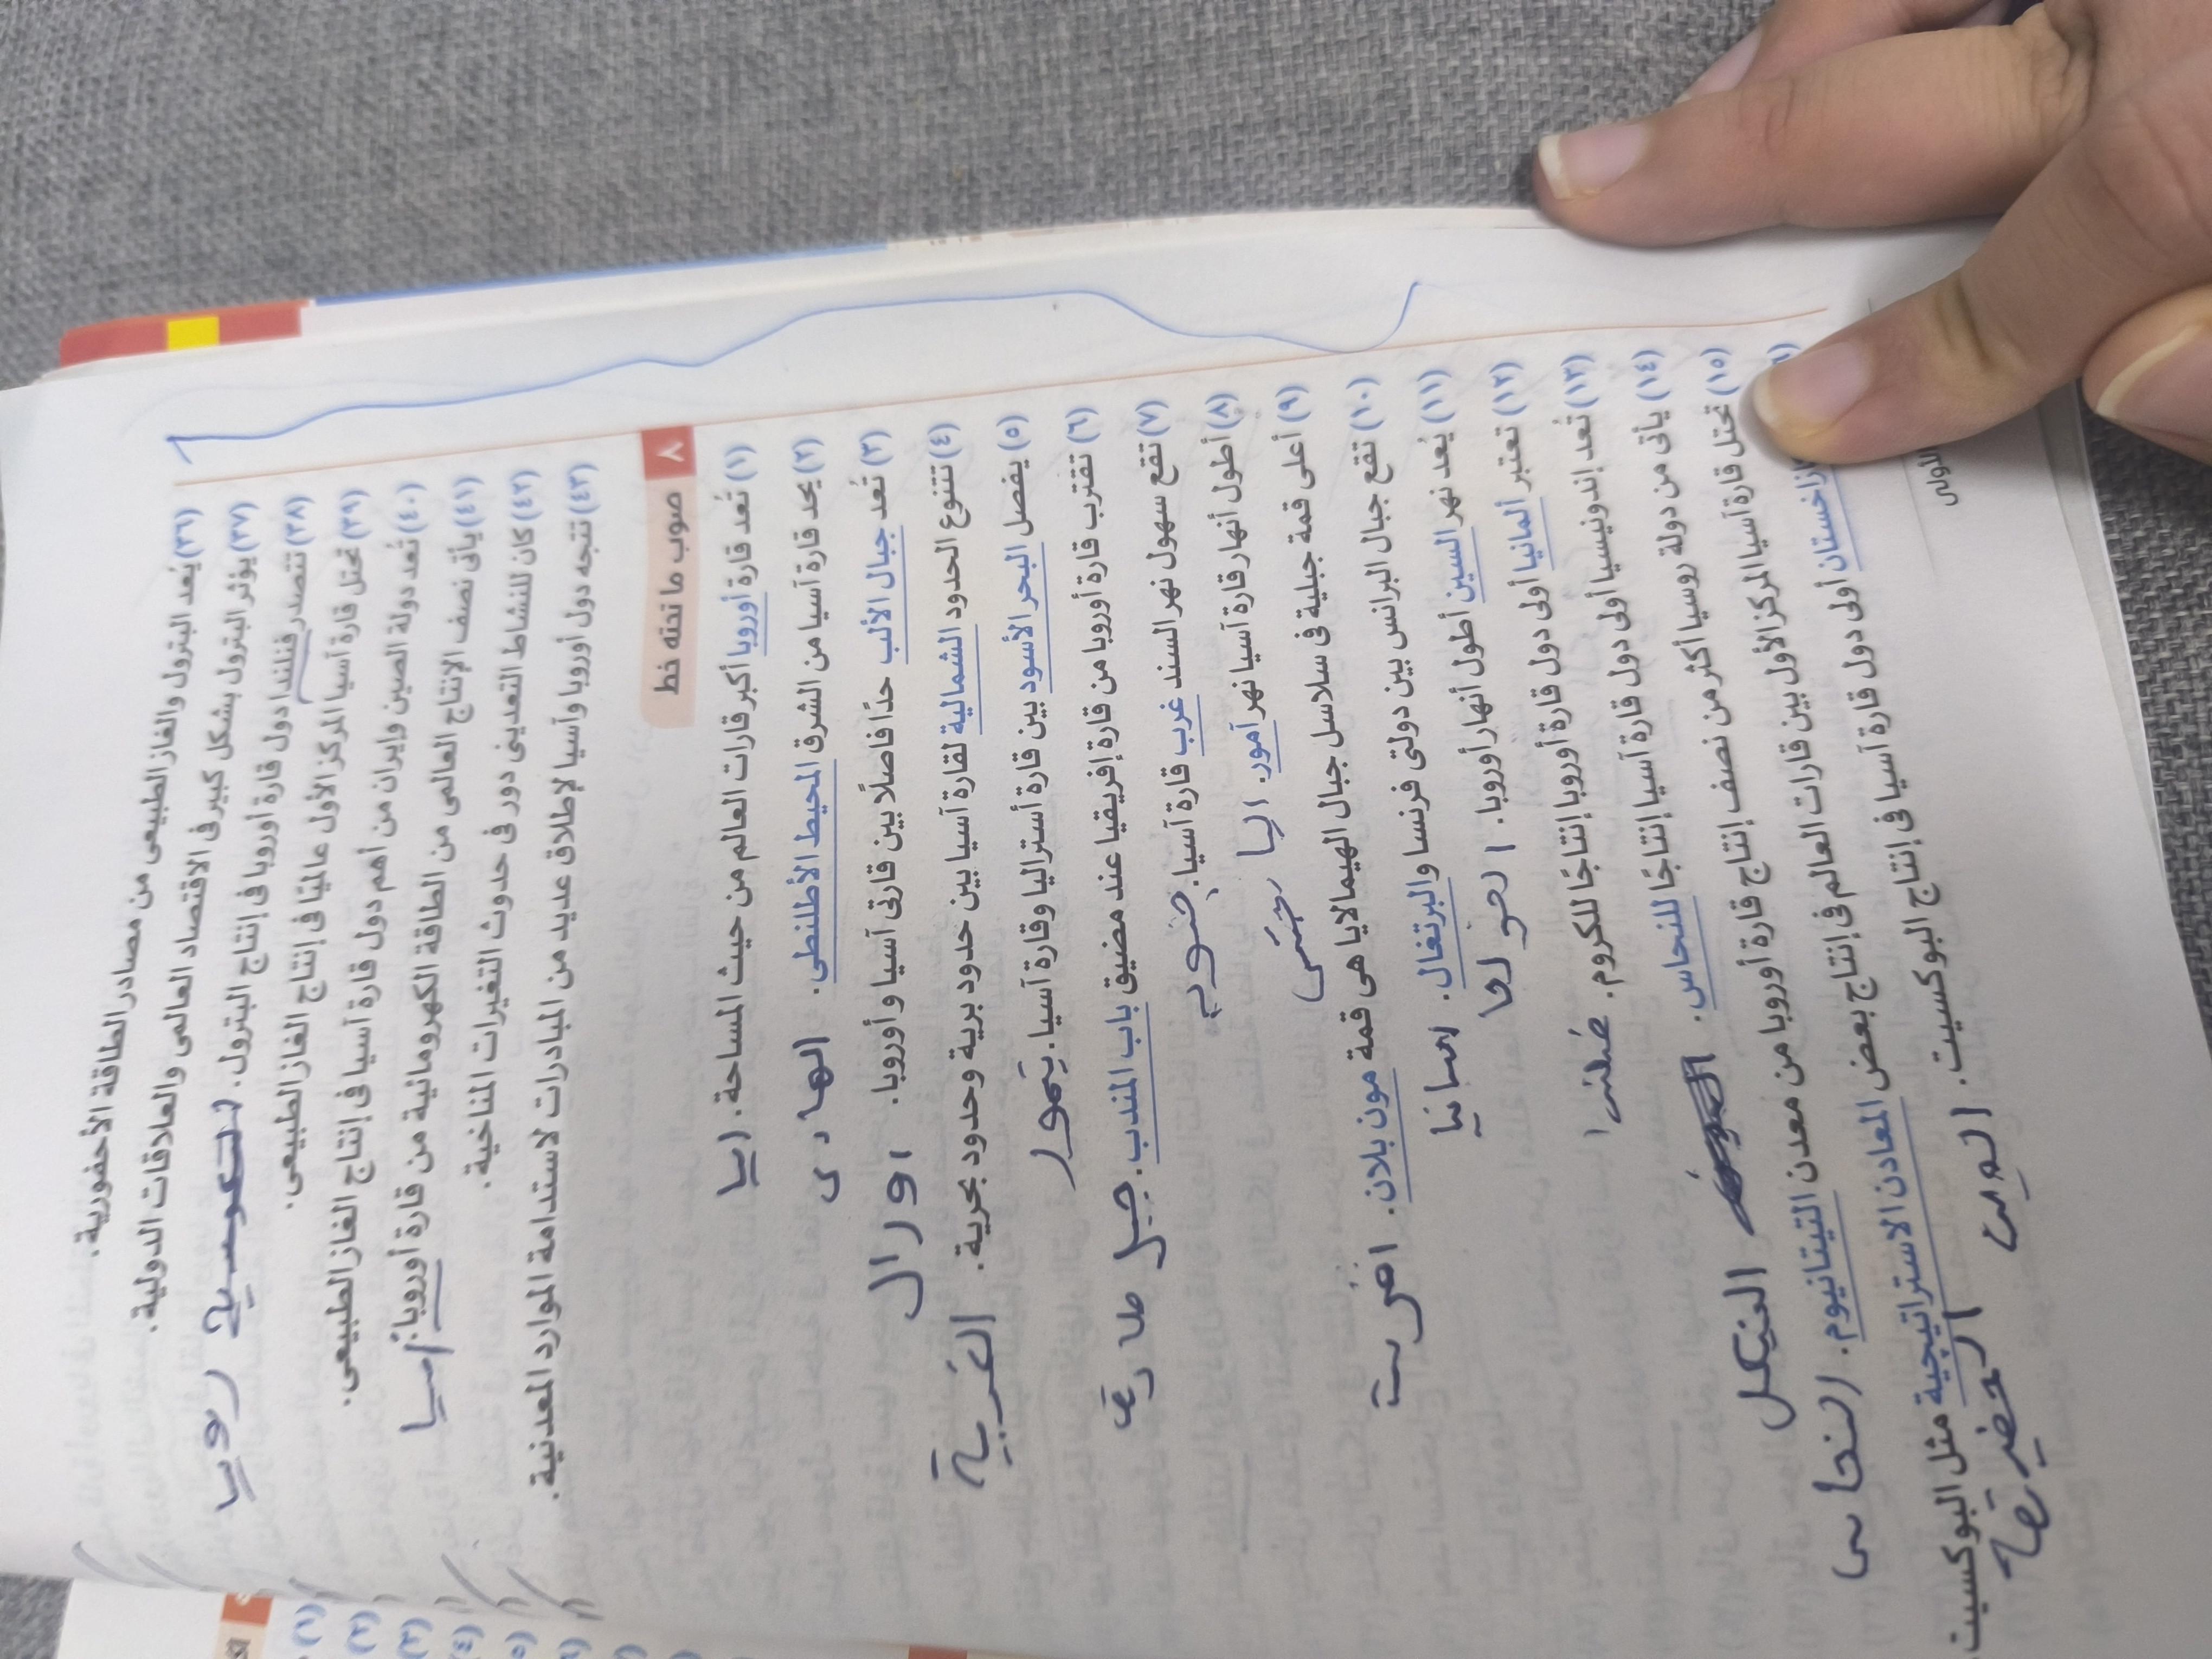 (٣٦) يُعد البترول والغاز الطبيعى من مصادر الطاقة الأحفورية.
(٣٧) يؤثر البترول بشكل كبير فى الاقتصاد العالمى والعلاقات الدولية.
(٣٨) تتصدر فنلندا دول قارة أوروبا فى إنتاج البترول. روسيا
(٣٩) تحتل قارة آسيا المركز الأول عالميًا فى إنتاج الغاز الطبيعى.
(٤٠) تُعد دولة الصين وإيران من أهم دول قارة آسيا فى إنتاج الغاز الطبيعى.
(٤١) يأتى نصف الإنتاج العالمى من الطاقة الكهرومائية من قارة أوروبا. اسيا
(٤٢) كان للنشاط التعدينى دور فى حدوث التغيرات المناخية.
(٤٣) تتجه دول أوروبا وآسيا لإطلاق عديد من المبادرات لاستدامة الموارد المعدنية.
٨ صوب ما تحته خط
(١) تُعد قارة أوروبا أكبر قارات العالم من حيث المساحة. اسيا
(٢) يحد قارة آسيا من الشرق المحيط الأطلنطى. الهادى
(٣) تُعد جبال الألب حدًا فاصلًا بين قارتى آسيا وأوروبا. اورال
(٤) تتنوع الحدود الشمالية لقارة آسيا بين حدود برية وحدود بحرية. الغربية
(٥) يفصل البحر الأسود بين قارة أستراليا وقارة آسيا. تيمور
(٦) تقترب قارة أوروبا من قارة إفريقيا عند مضيق باب المندب. جبل طارق
(٧) تقع سهول نهر السند غرب قارة آسيا. جنوب
(٨) أطول أنهار قارة آسيا نهر آمور. اليانجتسى
(٩) أعلى قمة جبلية فى سلاسل جبال الهيمالايا هى قمة مون بلان. افرست
(١٠) تقع جبال البرانس بين دولتى فرنسا والبرتغال. اسبانيا
(١١) يُعد نهر السين أطول أنهار أوروبا. الفولجا
(١٢) تعتبر ألمانيا أولى دول قارة أوروبا إنتاجًا للكروم. فنلندا
(١٣) تُعد إندونيسيا أولى دول قارة آسيا إنتاجًا للنحاس. النيكل
(١٤) يأتى من دولة روسيا أكثر من نصف إنتاج قارة أوروبا من معدن التيتانيوم. النحاس
(١٥) تحتل قارة آسيا المركز الأول بين قارات العالم فى إنتاج بعض المعادن الاستراتيجية مثل البوكسيت
أولى دول قارة آسيا فى إنتاج البوكسيت. الصين
الأولى